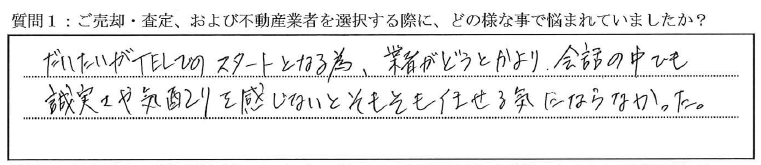 質問１：ご売却・査定、および不動産業者を選択する際に、どの様な事で悩まれていましたか？
だいたいがTELでのスタートとなる為、業者がどうとかより、会話の中でも
誠実さや気配りを感じないとそもそも任せる気にならなかった。